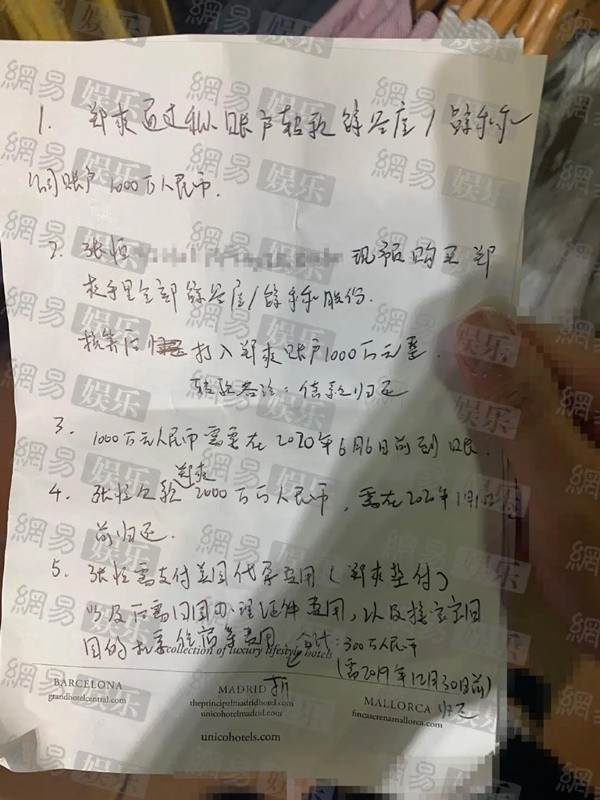 1. 郑爽通过私人账户转款 馀谷屋/馀乐乐
公司账户 1000万人民币.
2. 张恒 现市面购买郑
爽手里全部馀谷屋/馀乐乐股份.
核算后 打入郑爽账户1000万元整.
转款备注：借款归还
3. 1000万元人民币需要在2020年6月6日前到账.
4. 张恒欠款郑爽2000万元人民币，需在2020年1月1日
前归还.
5. 张恒需支付美国代孕费用（郑爽垫付）
以及后需回国办理证件费用，以及接宝宝回
国的机票住宿等费用 合计：300万人民币
（需2019年12月30日前）
归还
collection of luxury lifestyle hotels
BARCELONA
grandhotelcentral.com
MADRID
theprincipalmadridhotel.com
unicohotelmadrid.com
MALLORCA
fincaserenamallorca.com
unicohotels.com
網易娱乐